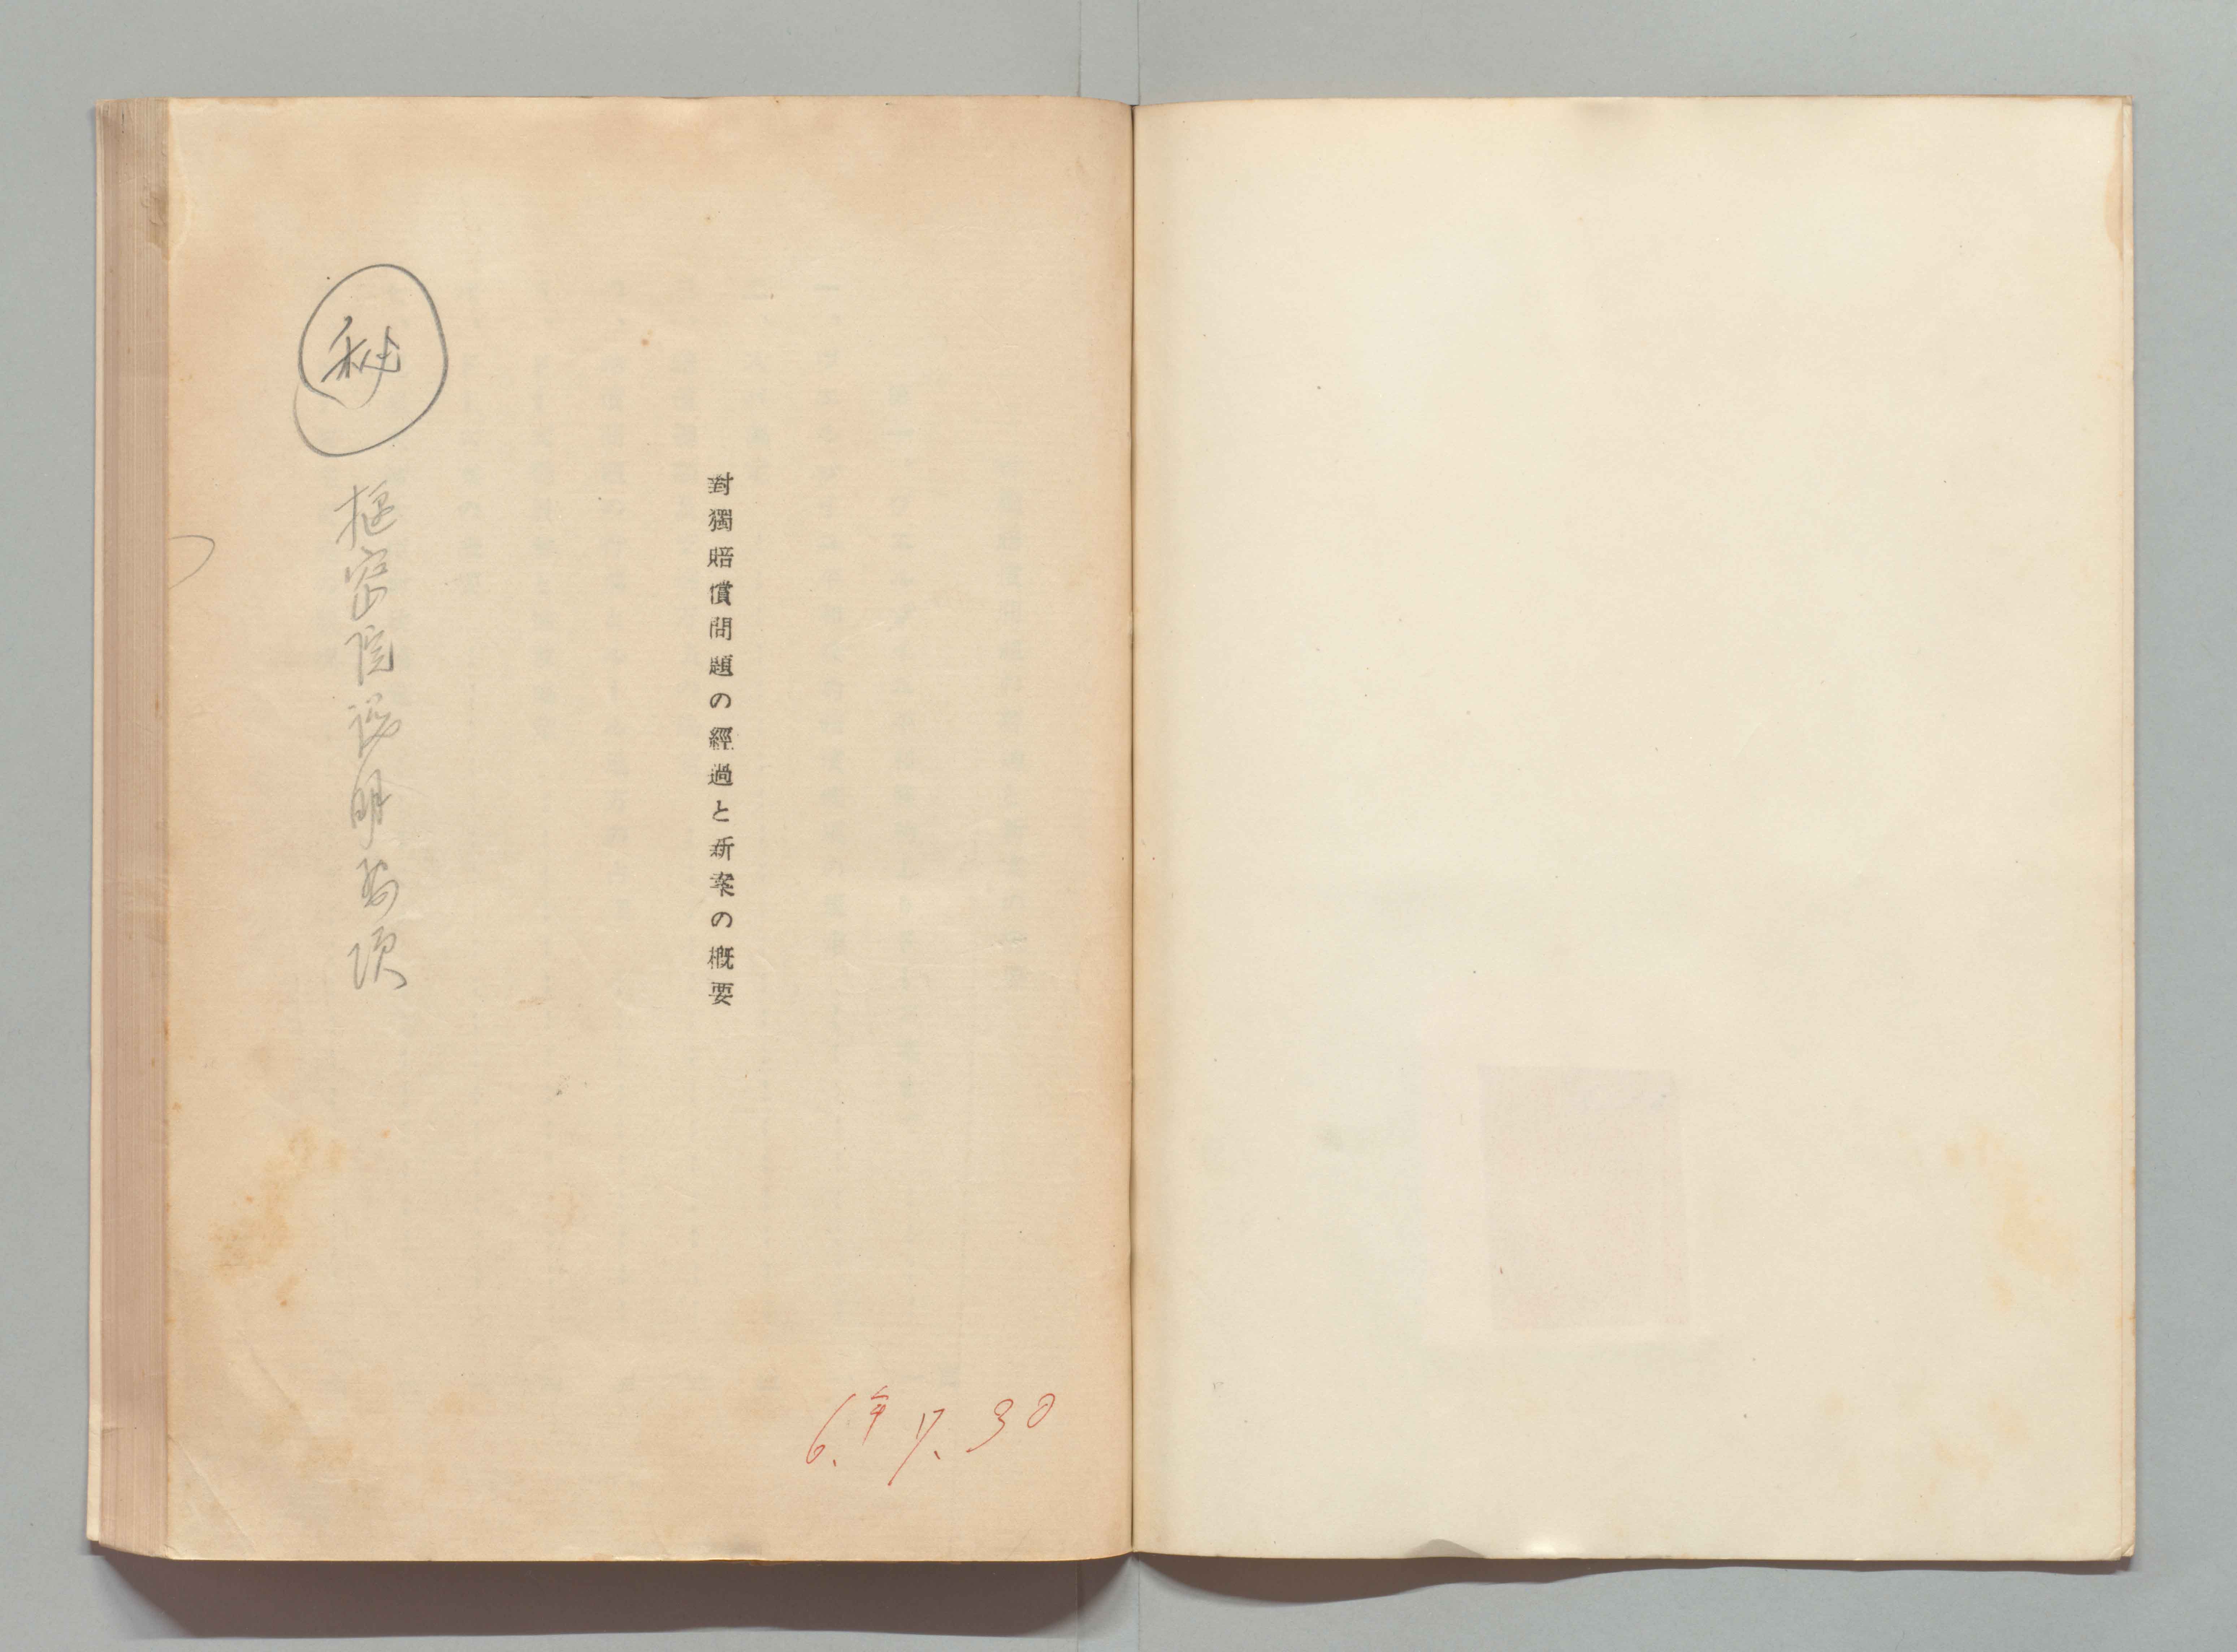 對獨賠償問題の經過と新案の概要
秘
枢密院説明事項
6.年 7. 30